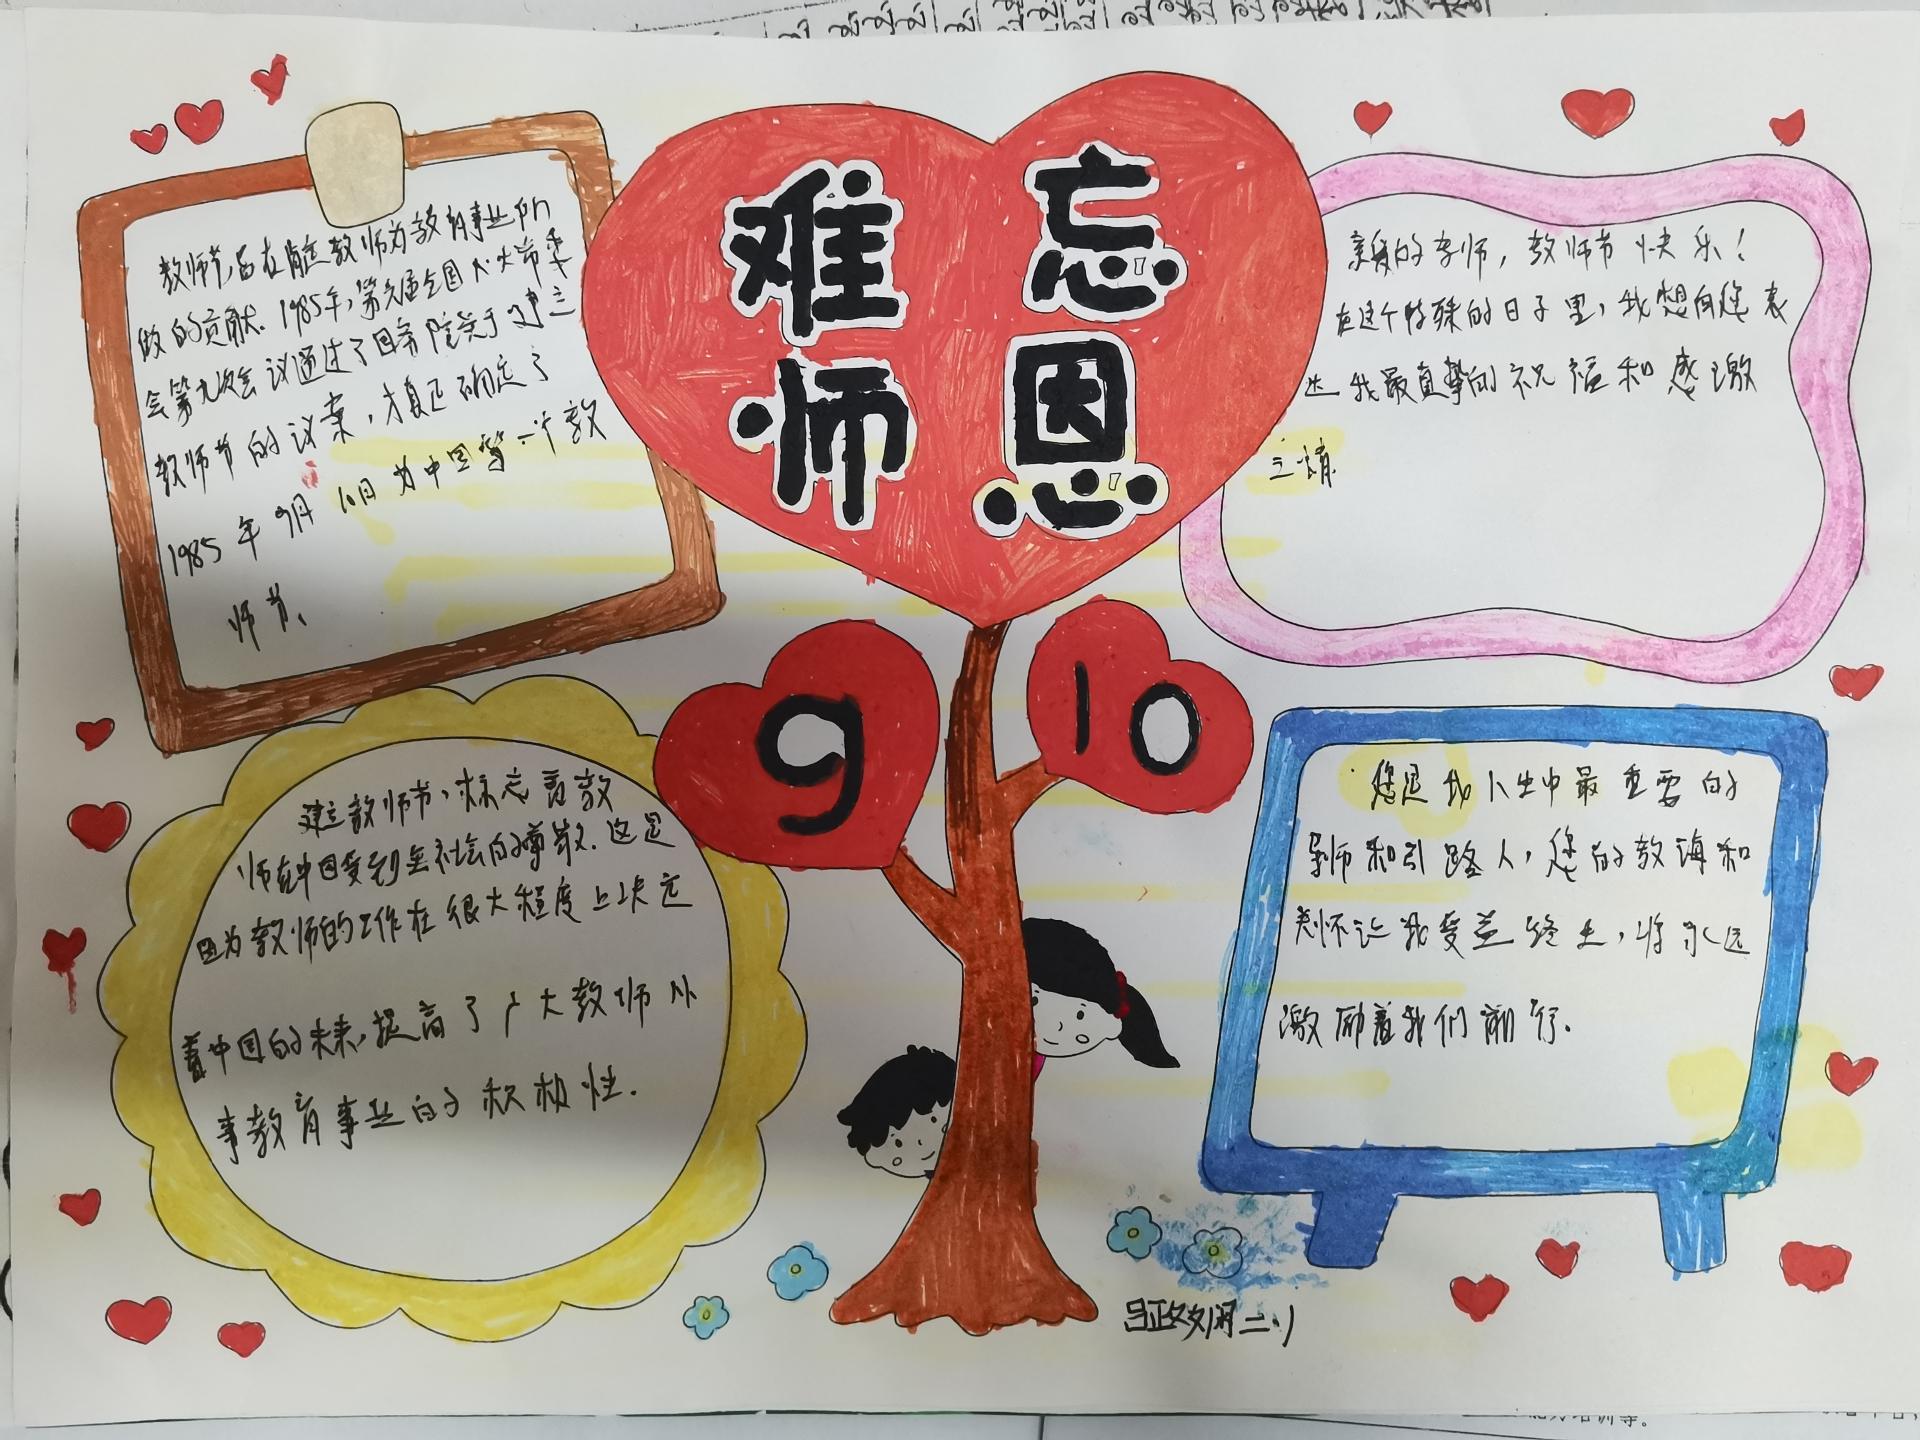 难忘
师恩
9
10
教师节,旨在肯定教师为教育事业所
做的贡献.1985年,第六届全国人大常委
会第九次会议通过了国务院关于建立
教师节的议案,才真正确定了
1985年9月10日为中国第一个教
师节、
亲爱的老师,教师节快乐!
在这个特殊的日子里,我想向您表
达我最真挚的祝福和感激
之情.
建立教师节,标志着教
师在中国受到全社会的尊敬.这是
因为教师的工作在很大程度上决定
着中国的未来,提高了广大教师从
事教育事业的积极性.
您是我人生中最重要的
导师和引路人,您的教诲和
关怀让我受益终生,将永远
激励着我们前行.
二.1